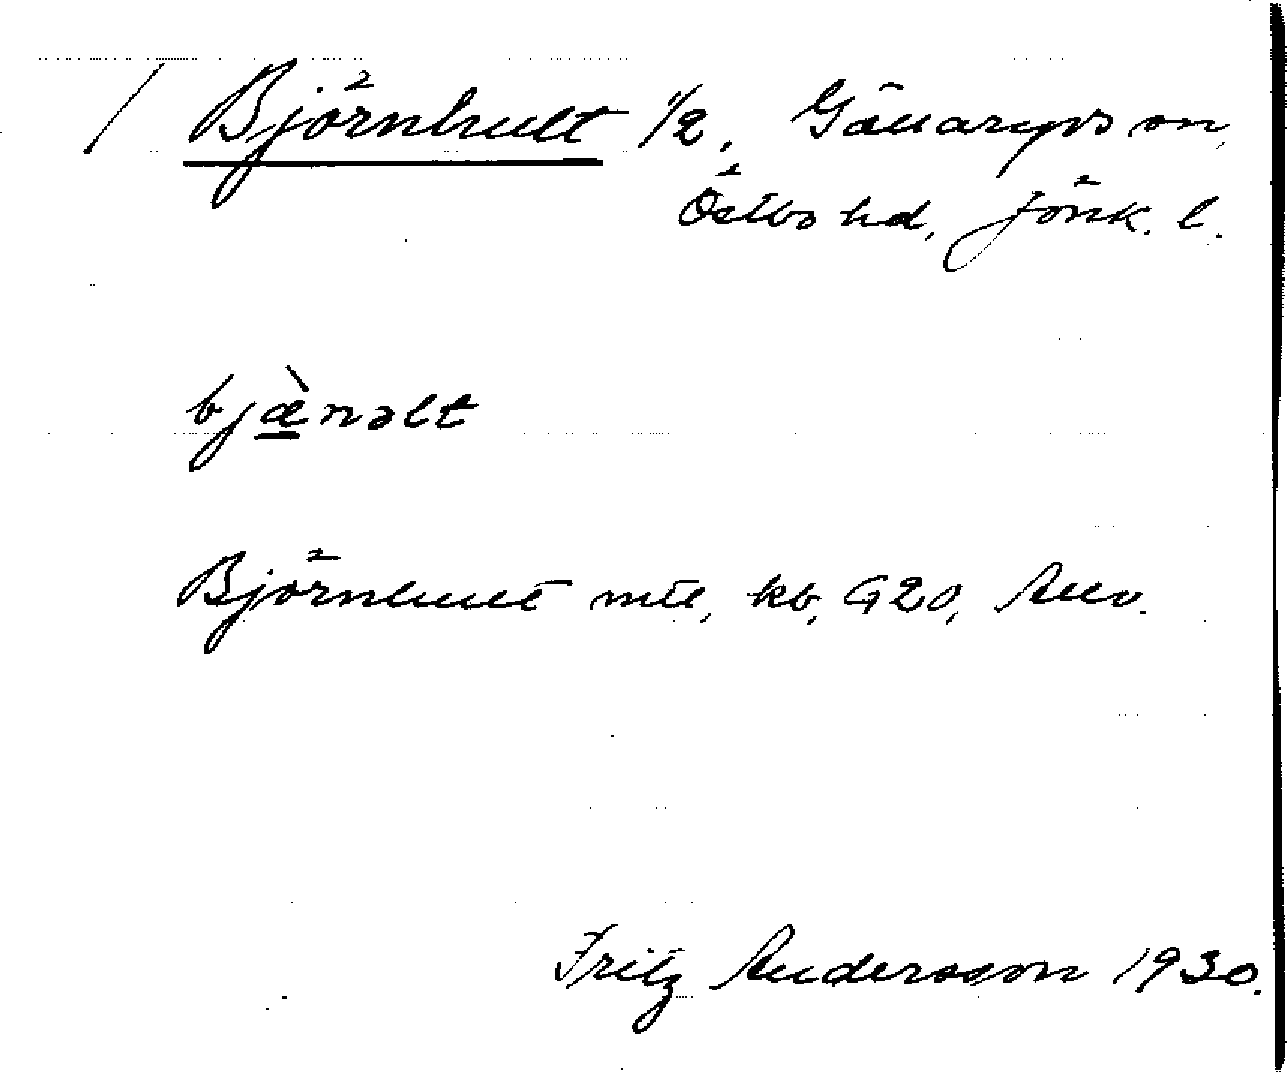 / Björnhult 1/2, Gällaryds sn,
Östbo hd, Jönk. l.
bjæ̀nəlt
Björnhult mtl, kb, G20,
Fritz Andersson 1930.